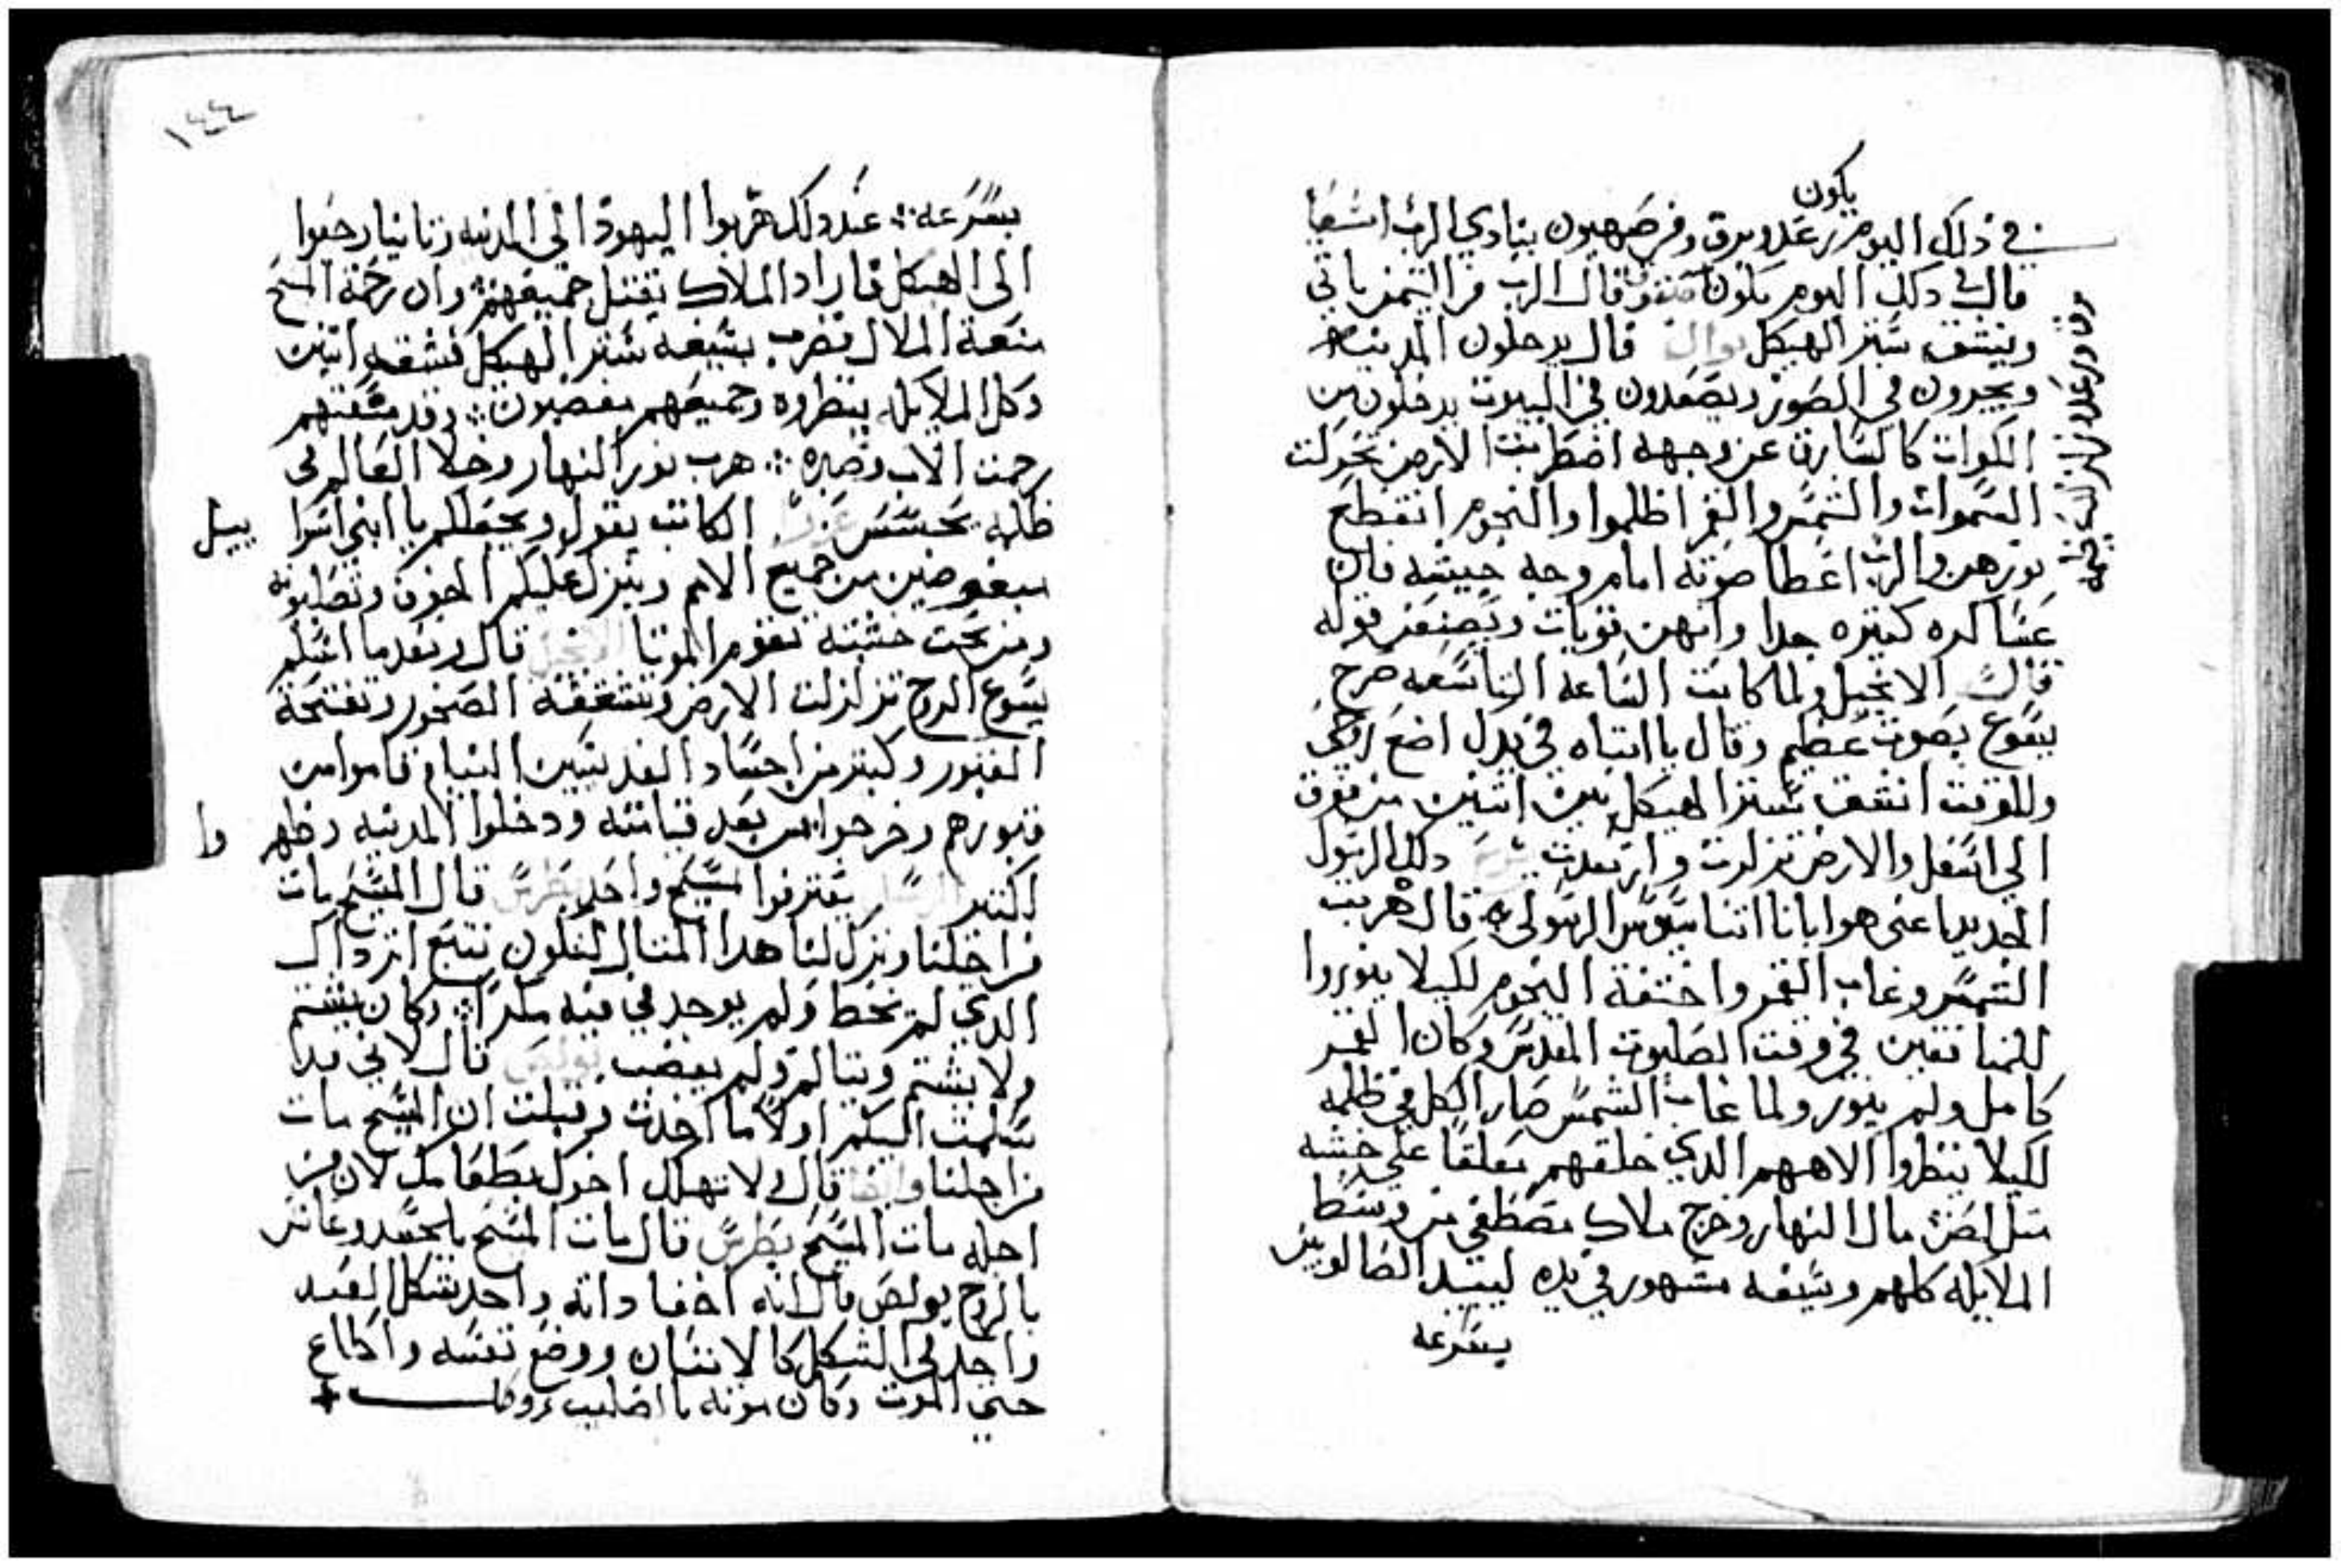 يكون
في ذلك اليوم رعد وبرق ومن صهيون ينادي الرب اشعيا
قال في ذلك اليوم قال الرب من التيمن ياتي
وينشق ستر الهيكل يوال قال يدخلون المدينه
ويجرون في الصور ويصعدون في البيوت يدخلون من
الكوات كالسارق عن وجهه اضطربت الارض تحركت
السموات والشمس والقمر اظلموا والنجوم انقطع
نورهن والرب اعطا صوته امام وجه جيشه فان
عساكره كتيره جدا وانهن قويات ويصنعن قوله
قال الانجيل ولما كانت الساعه التاسعه صرخ
يسوع بصوت عظيم وقال يا ابتاه في يدك اضع روحي
وللوقت انشق ستر الهيكل بين اثنين من فوق
الى اسفل والارض تزلزلت وارتعدت ذلك الرسول
الجديد اعني هو ابانا اتناسيوس الرسولي قال هربت
الشمس وغاب القمر واختفة النجوم لكيلا ينوروا
للمنافقين في وقت الصلبوت المقدس وكان القمر
كامل ولم ينور ولما غاب الشمس صار الكل في ظلمه
لكيلا ينظروا الاههم الذي خلقهم معلقا على خشبه
مثل اللص مال النهار وخرج ملاك مصطفى من وسط
الملايكه كلهم وسيفه مشهور في يده ليبيد الضالويين
بسرعه
١٤٤
بسرعه عند ذلك هربوا اليهود الى المدينه وتانيا رجعوا
الى الهيكل فاراد الملاك يقتل جميعهم وان رحمة المسيح
منعة الملاك فضرب بسيفه ستر الهيكل فشقه اتنين
وكل الملايكه ينظروه وجميعهم مغضبون وقد منعتهم
رحمت الاب وصبره هرب نور النهار وخلا العالم في
ظلمه عزرا الكاتب يقول ويجعلكم يا ابني اسرا
ييل
مبغوضين من جميع الامم وينزل عليكم الحزن وتصلبونه
ومن تحت خشبته تقوم الموتا الانجيل قال وبعدما اسلم
يسوع الروح تزلزلت الارض وتشققة الصخور وتفتحة
القبور وكتير من اجساد القديسين النيام قاموا من
قبورهم وخرجوا من بعد قيامته ودخلوا المدينه وظهر
وا
لكتير يعترفوا بمسيح واحد بطرس قال المسيح مات
من اجلنا وترك لنا هدا المتال لنكون نتبع اتر داك
الدي لم يخط ولم يوجد في فيه مكرا وكان يشتم
ولا يشتم ويتالم ولم يغضب بولص قال لاني بدا
سلمت اليكم اولا ما اخدت وقبلت ان المسيح مات
من اجلنا وايضا قال لا تهلك اخوك بطعامك لان من
اجله مات المسيح بطرس قال مات المسيح بالجسد وعاش
بالروح بولص قال انه اخفا داته واحد شكل العبد
واحد في الشكل كالانسان ووضع نفسه واطاع
حتى الموت وكان موته بالصليب وقال